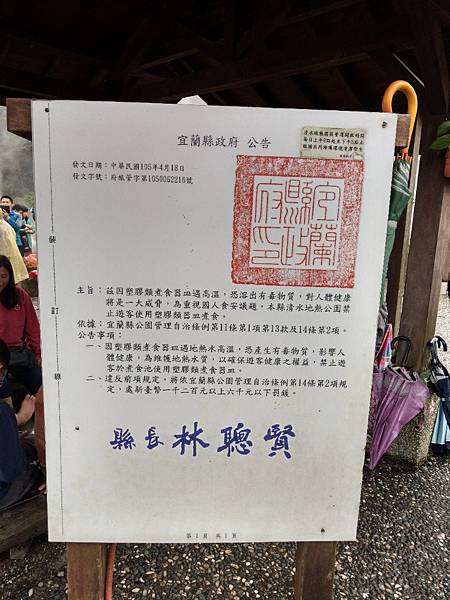 宜蘭縣政府 公告
發文日期：中華民國105年4月18日
發文字號：府旅管字第1050062216號
宜蘭縣政府印
主旨：茲因塑膠類煮食器皿遇高溫，恐溶出有毒物質，對人體健康
將是一大威脅，為重視國人食安議題，本縣清水地熱公園禁
止遊客使用塑膠類器皿煮食。
依據：宜蘭縣公園管理自治條例第11條第1項第13款及14條第2項。
公告事項：
一、因塑膠類煮食器皿遇地熱水高溫，恐產生有毒物質，影響人
體健康，為維護地熱水質，以確保遊客健康之權益，禁止遊
客於煮食池使用塑膠類煮食器皿。
二、違反前項規定，將依宜蘭縣公園管理自治條例第14條第2項規
定，處新臺幣一千二百元以上六千元以下罰鍰。
縣長 林聰賢
裝
訂
線
第1頁 共1頁